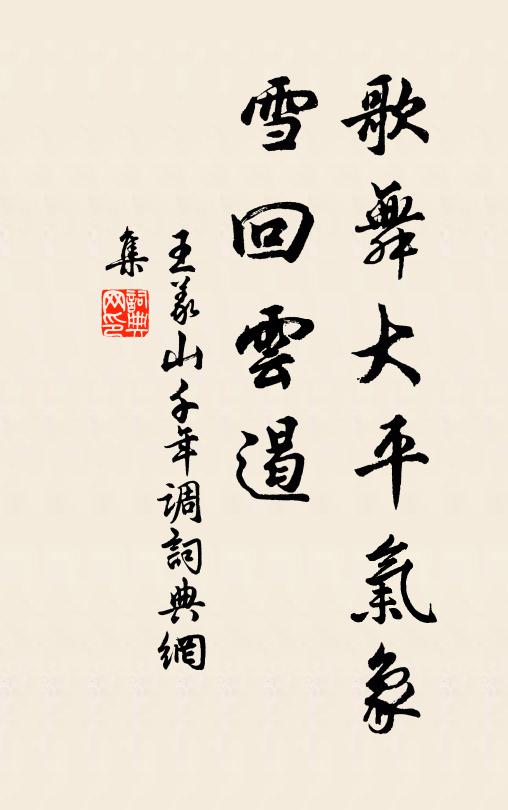 歌舞大平氣象
雪回雲遏
王義山千年调詞典網
集
詞典
网印